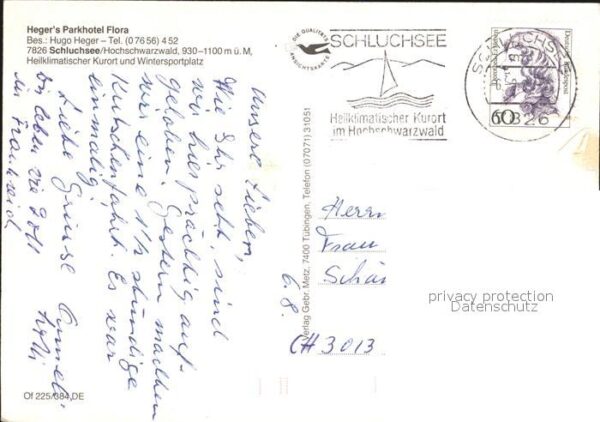 Heger's Parkhotel Flora
Bes.: Hugo Heger – Tel. (0 76 56) 4 52
7826 Schluchsee/Hochschwarzwald, 930–1100 m ü. M,
Heilklimatischer Kurort und Wintersportplatz
Unsere Lieben,
Wie Ihr seht, sind
wir hier prächtig auf-
gehoben. Gestern machten
wir eine 1½ stündige
Kutschenfahrt. Es war
einmalig
Liebe Grüsse
Of 225/384 DE
6.8
Verlag Gebr. Metz, 7400 Tübingen, Telefon (07071) 31051
DIE QUALITÄTS
ANSICHTSKARTE
SCHLUCHSEE
Heilklimatischer Kurort
im Hochschwarzwald
SCHLUCHSEE
7826
Deutsche Bundespost
60
Herrn
Frau
Schär
CH 3013
privacy protection
Datenschutz